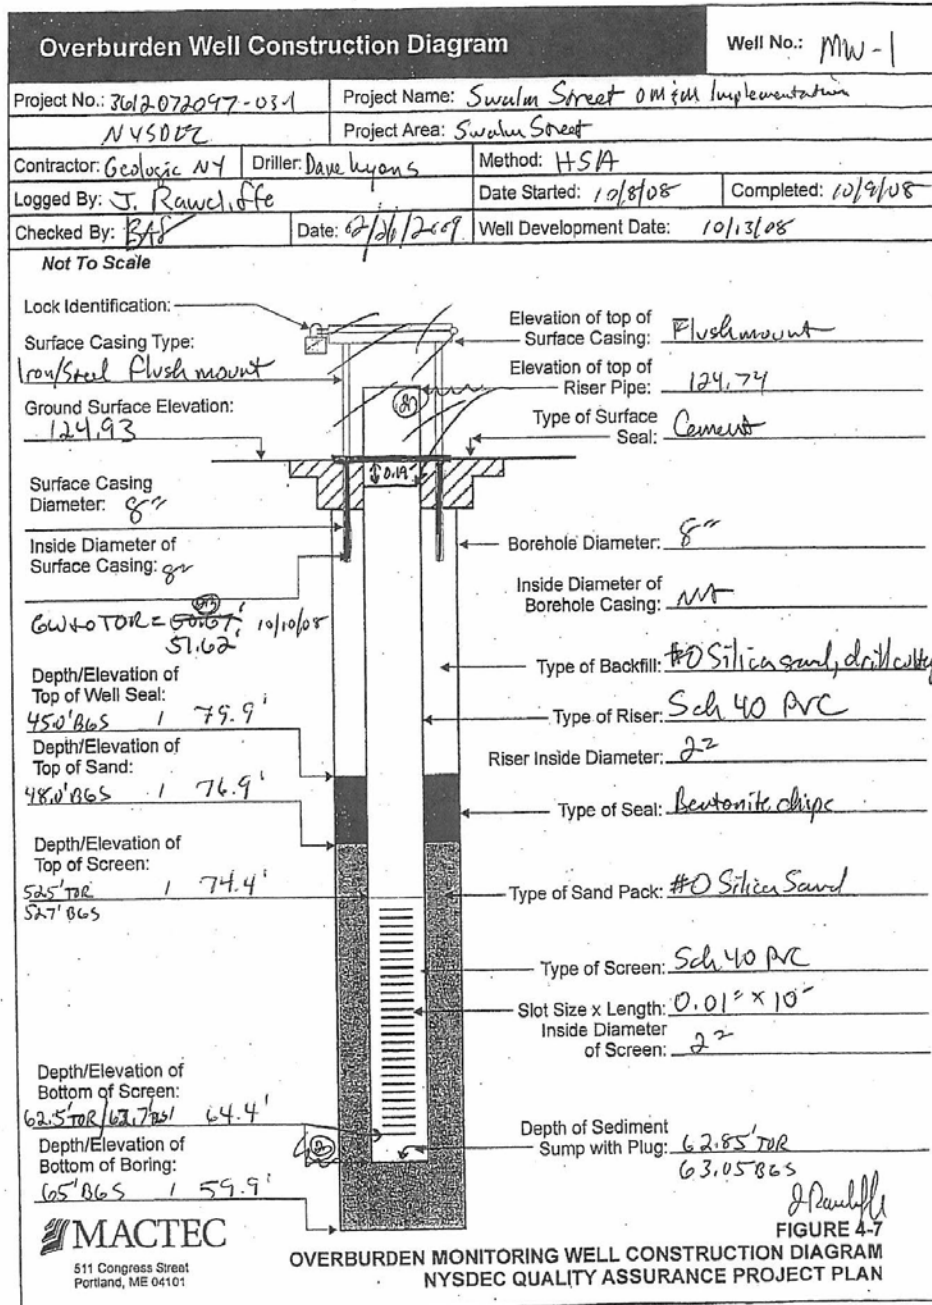 Overburden Well Construction Diagram
Well No.: MW-1
Project No.: 3612072097-03.1
Project Name: Swalm Street OM&M Implementation
NYSDEC
Project Area: Swalm Street
Contractor: Geologic NY
Driller: Dave Lyons
Method: HSA
Logged By: J. Rawcliffe
Date Started: 10/8/08
Completed: 10/9/08
Checked By:
Date: 02/26/2009
Well Development Date: 10/13/08
Not To Scale
Lock Identification:
Surface Casing Type:
Iron/Steel Flush mount
Ground Surface Elevation:
124.93
Surface Casing
Diameter: 8"
Inside Diameter of
Surface Casing: 8"
GW to TOR =
10/10/08
51.62'
Depth/Elevation of
Top of Well Seal:
45.0' BGS / 79.9'
Depth/Elevation of
Top of Sand:
48.0' BGS / 76.9'
Depth/Elevation of
Top of Screen:
52.5' TOR / 74.4'
52.7' BGS
Depth/Elevation of
Bottom of Screen:
62.5' TOR / 62.7' BGS / 64.4'
Depth/Elevation of
Bottom of Boring:
65' BGS / 59.9'
0.19'
Elevation of top of
Surface Casing: Flushmount
Elevation of top of
Riser Pipe: 124.74
Type of Surface
Seal: Cement
Borehole Diameter: 8"
Inside Diameter of
Borehole Casing: NA
Type of Backfill: #0 Silica sand, drill cuttings
Type of Riser: Sch 40 PVC
Riser Inside Diameter: 2"
Type of Seal: Bentonite chips
Type of Sand Pack: #0 Silica Sand
Type of Screen: Sch 40 PVC
Slot Size x Length: 0.01" x 10'
Inside Diameter
of Screen: 2"
Depth of Sediment
Sump with Plug: 62.85' TOR
63.05 BGS
J Rawcliffe
MACTEC
511 Congress Street
Portland, ME 04101
FIGURE 4-7
OVERBURDEN MONITORING WELL CONSTRUCTION DIAGRAM
NYSDEC QUALITY ASSURANCE PROJECT PLAN